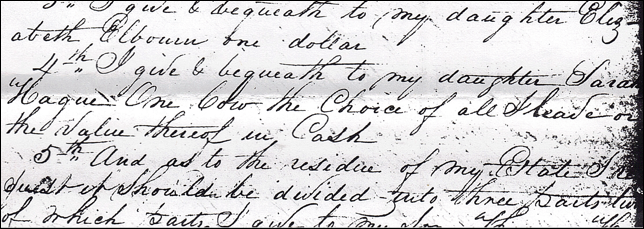 3 " I give & bequeath to my daughter Eliz
abeth Elbourn one dollar
4th " I give & bequeath to my daughter Sarah
Hague One Cow the Choice of all I leave or
the Value thereof in Cash
5th " And as to the residue of my Estate I re
quest it should be divided into three parts two
of which parts I give to my